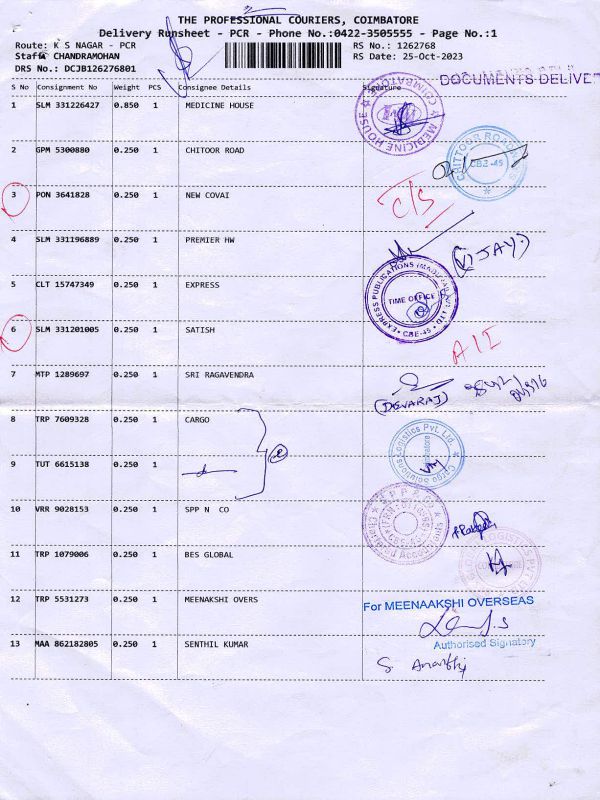 THE PROFESSIONAL COURIERS, COIMBATORE
Delivery Runsheet - PCR - Phone No.:0422-3505555 - Page No.:1
Route: K S NAGAR - PCR
RS No.: 1262768
Staff: CHANDRAMOHAN
RS Date: 25-Oct-2023
DRS No.: DCJB126276801
DOCUMENTS DELIVER
S No Consignment No Weight PCS Consignee Details Signature
1 SLM 331226427 0.850 1 MEDICINE HOUSE
MEDICINE HOUSE COIMBATORE
2 GPM 5300880 0.250 1 CHITOOR ROAD
CHITTOOR ROADWAYS
CBE-45
3 PON 3641828 0.250 1 NEW COVAI
C/S
4 SLM 331196889 0.250 1 PREMIER HW
(VIJAY)
5 CLT 15747349 0.250 1 EXPRESS
EXPRESS PUBLICATIONS (MADURAI) PVT LTD CBE-45
TIME OFFICE
6 SLM 331201005 0.250 1 SATISH
7 MTP 1289697 0.250 1 SRI RAGAVENDRA
(DEVARAJ)
8 TRP 7609328 0.250 1 CARGO
2
Cargo Solutions Logistics Pvt. Ltd.
Coimbatore
9 TUT 6615138 0.250 1
10 VRR 9028153 0.250 1 SPP N CO
S P P & Co
Chartered Accountants
11 TRP 1079006 0.250 1 BES GLOBAL
12 TRP 5531273 0.250 1 MEENAKSHI OVERS
For MEENAAKSHI OVERSEAS
Authorised Signatory
13 MAA 862182805 0.250 1 SENTHIL KUMAR
S. Ananthi